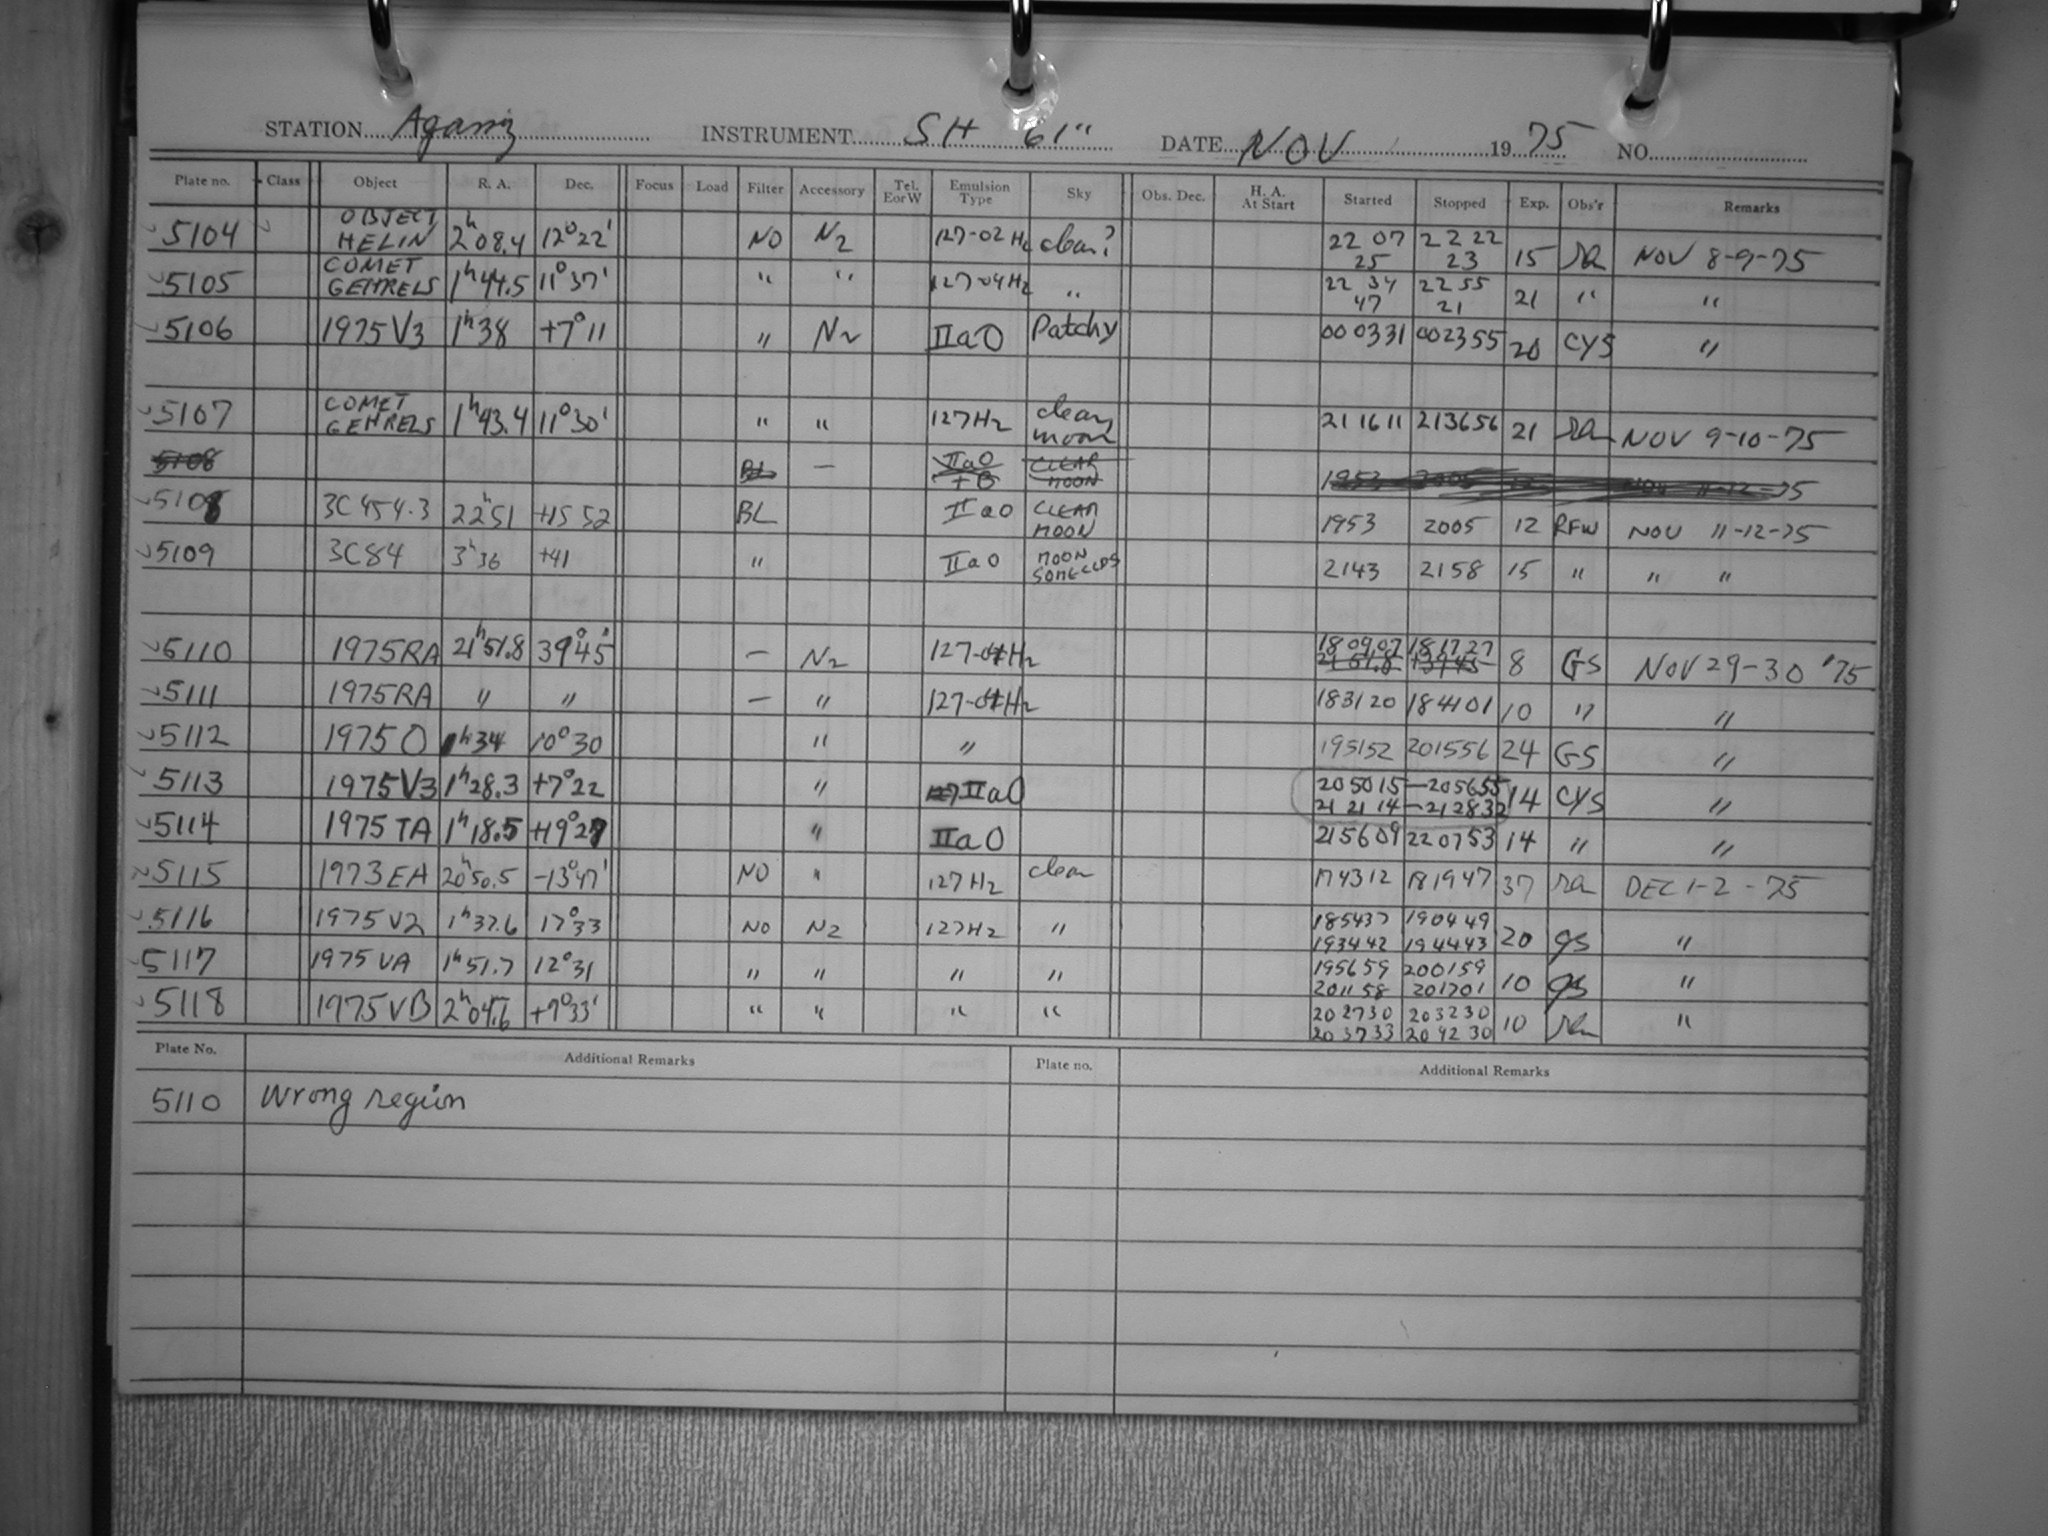 STATION Agassiz INSTRUMENT SH 61" DATE NOV 1975 NO.
Plate no. Class Object R. A. Dec. Focus Load Filter Accessory Tel. E or W Emulsion Type Sky Obs. Dec. H. A. At Start Started Stopped Exp. Obs'r Remarks
5104 OBJECT HELIN 2h08.4 12°22' NO N2 127-02 Hz clear? 22 07 25 22 22 23 15 NOV 8-9-75
5105 COMET GEHRELS 1h44.5 11°37' " " 127-04Hz " 22 34 47 22 55 21 21 " "
5106 1975V3 1h38 +7°11 " N2 IIaO Patchy 000331 002355 20 CYS "
5107 COMET GEHRELS 1h43.4 11°30' " " 127Hz clear moon 211611 213656 21 NOV 9-10-75
5108 BL — IIaO CLEAR MOON 1953 2005 NOV 11-12-75
5108 3C454.3 22h51 +15 52 BL IIaO CLEAR MOON 1953 2005 12 RFW NOV 11-12-75
5109 3C84 3h36 +41 " IIaO MOON SOME CLDS 2143 2158 15 " " "
5110 1975RA 21h51.8 39°45' — N2 127-04Hz 180907 181727 21 51.8 +39 45 8 GS NOV 29-30 '75
5111 1975RA " " — " 127-04Hz 183120 184101 10 " "
5112 1975O 1h34 10°30 " " 195152 201556 24 GS "
5113 1975V3 1h28.3 +7°22 " IIaO 205015—205655 212114—212832 14 CYS "
5114 1975TA 1h18.5 +19°27 " IIaO 215609 220753 14 " "
5115 1973EA 20h50.5 -13°47' NO " 127Hz clear 174312 181947 37 DEC 1-2-75
5116 1975V2 1h37.6 17°33 NO N2 127Hz " 185437 190449 193442 194443 20 gs "
5117 1975VA 1h51.7 12°31 " " " " 195659 200159 201158 201701 10 gs "
5118 1975VB 2h04.6 +7°33' " " " " 202730 203230 203733 204230 10 "
Plate No. Additional Remarks Plate no. Additional Remarks
5110 Wrong region